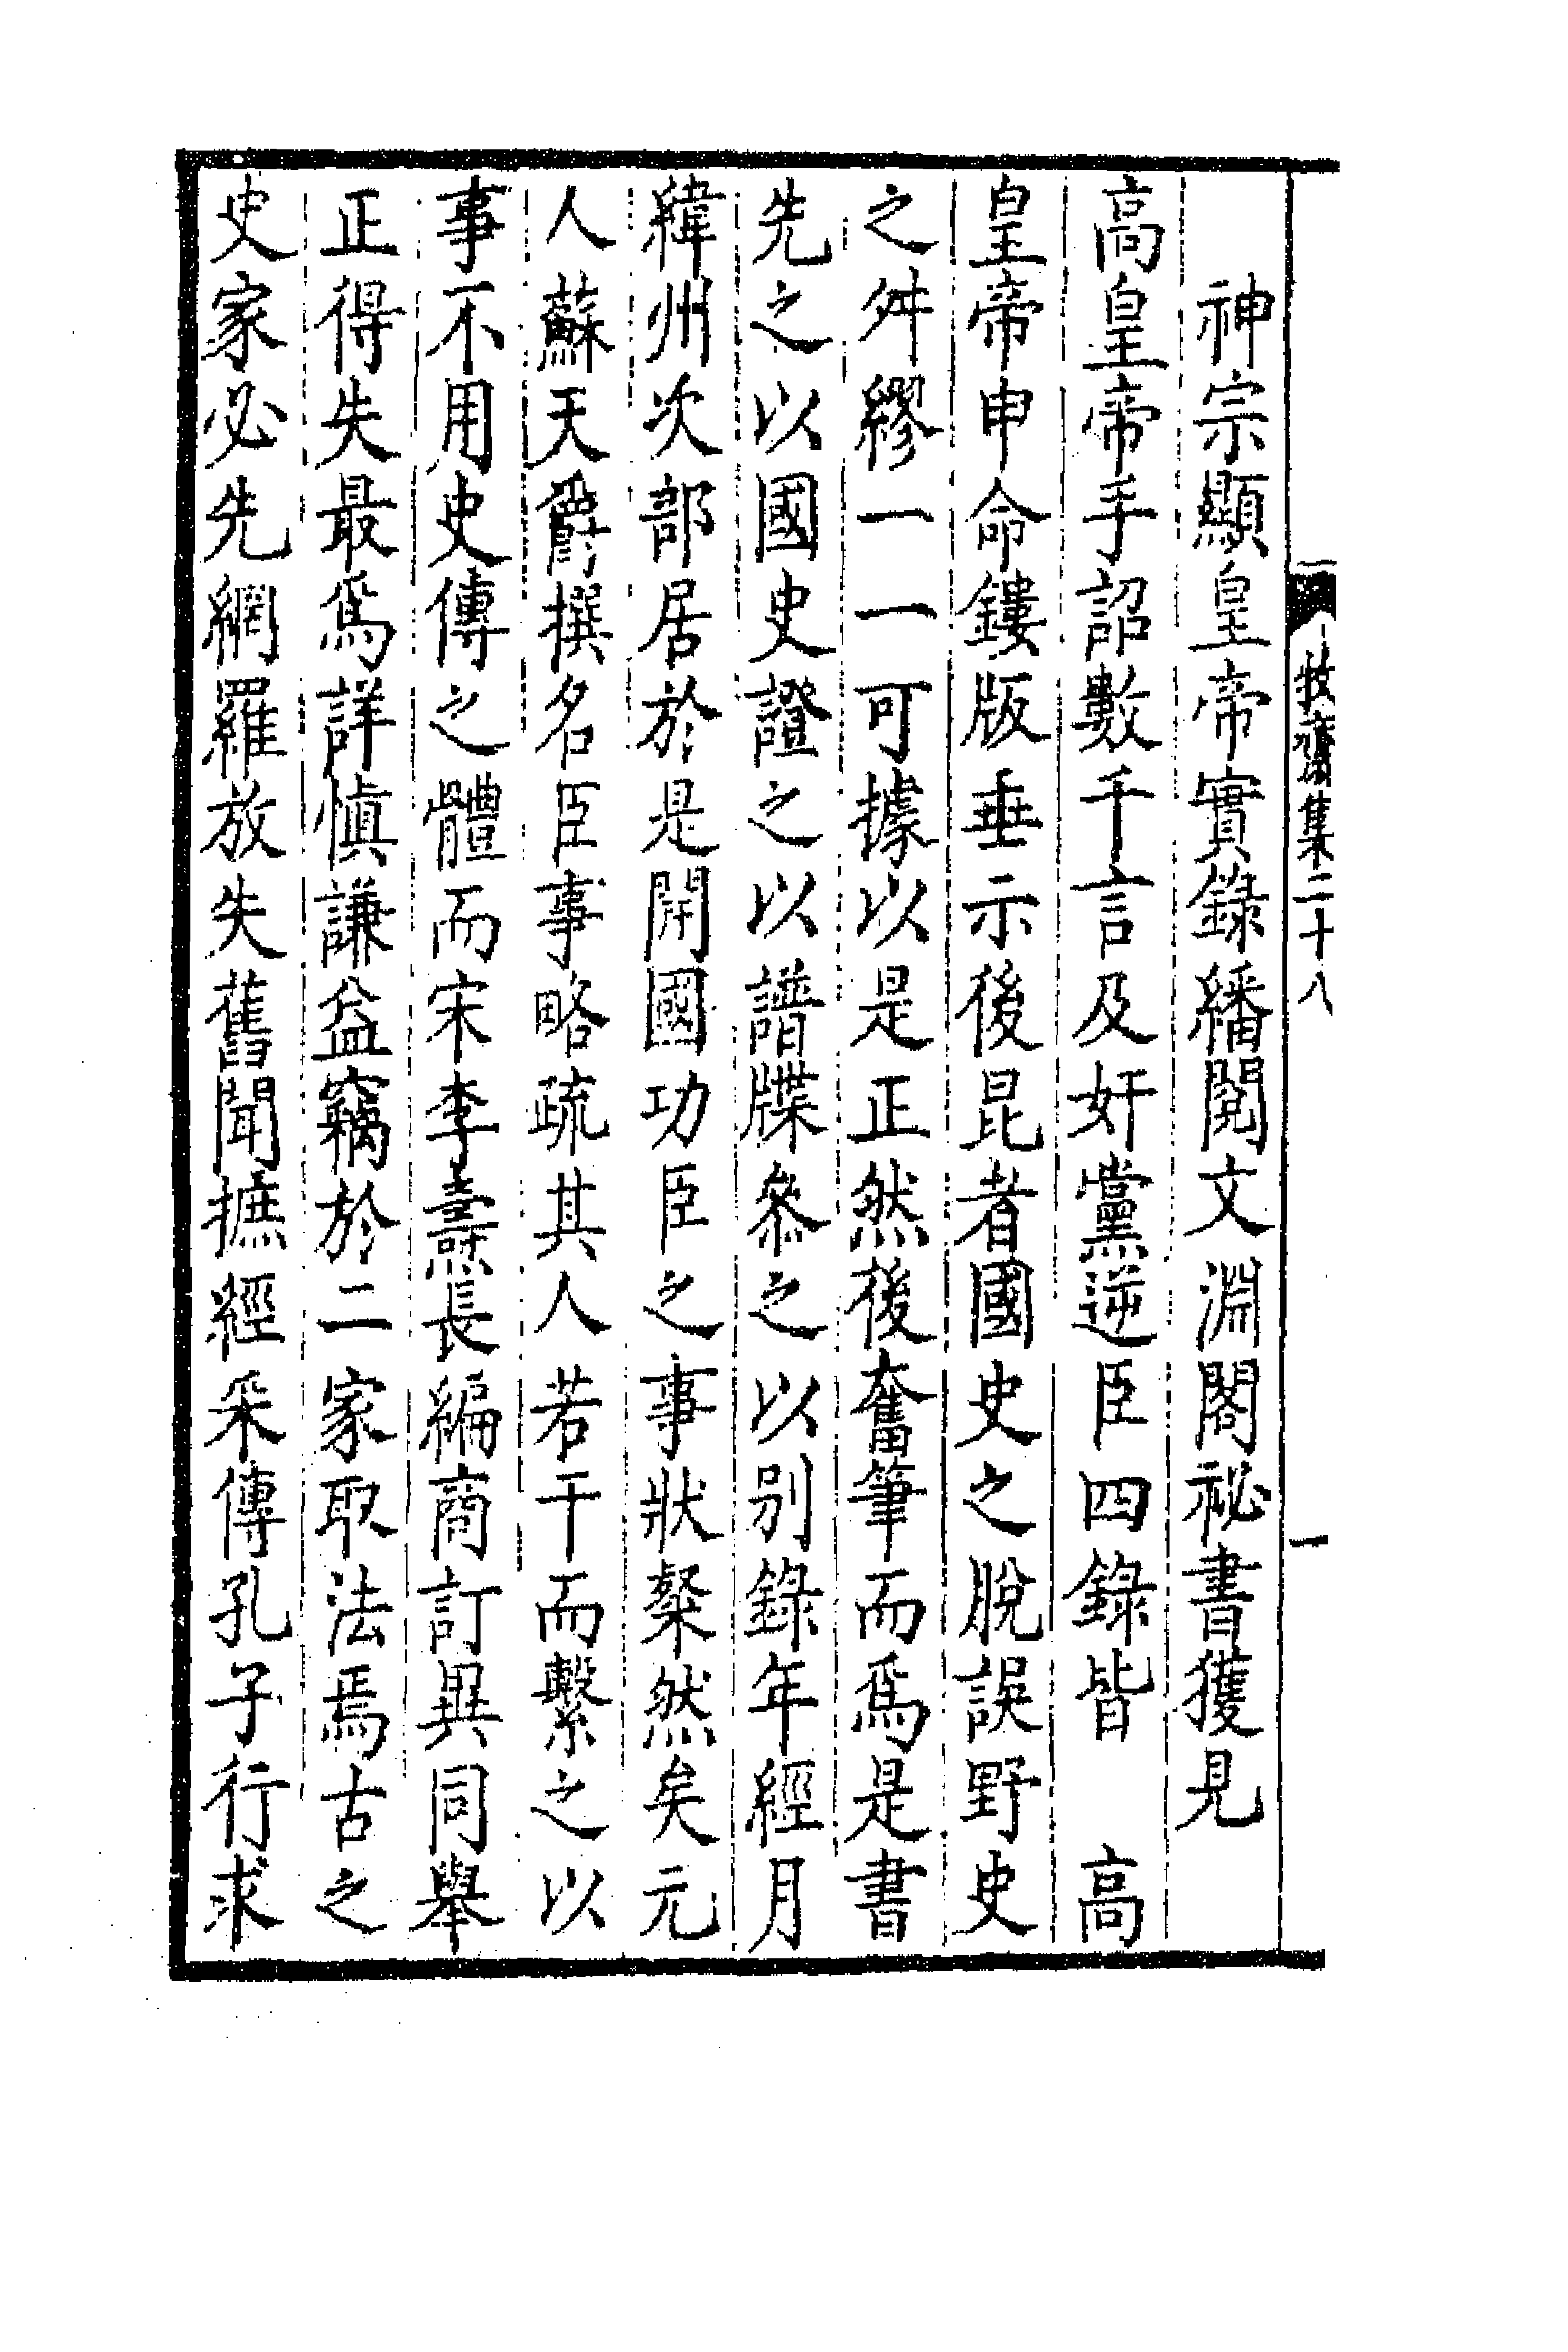 牧齋集二十八
一
神宗顯皇帝實錄繙閱文淵閣祕書獲見
高皇帝手詔數千言及奸黨逆臣四錄皆 高
皇帝申命鏤版垂示後昆者國史之脫誤野史
之舛繆一一可據以是正然後奮筆而爲是書
先之以國史證之以譜牒叅之以别錄年經月
緯州次部居於是開國功臣之事狀粲然矣元
人蘇天爵撰名臣事略疏其人若干而繫之以
事不用史傳之體而宋李燾長編商訂異同舉
正得失最爲詳愼謙益竊於二家取法焉古之
史家必先網羅放失舊聞摭經采傳孔子行求